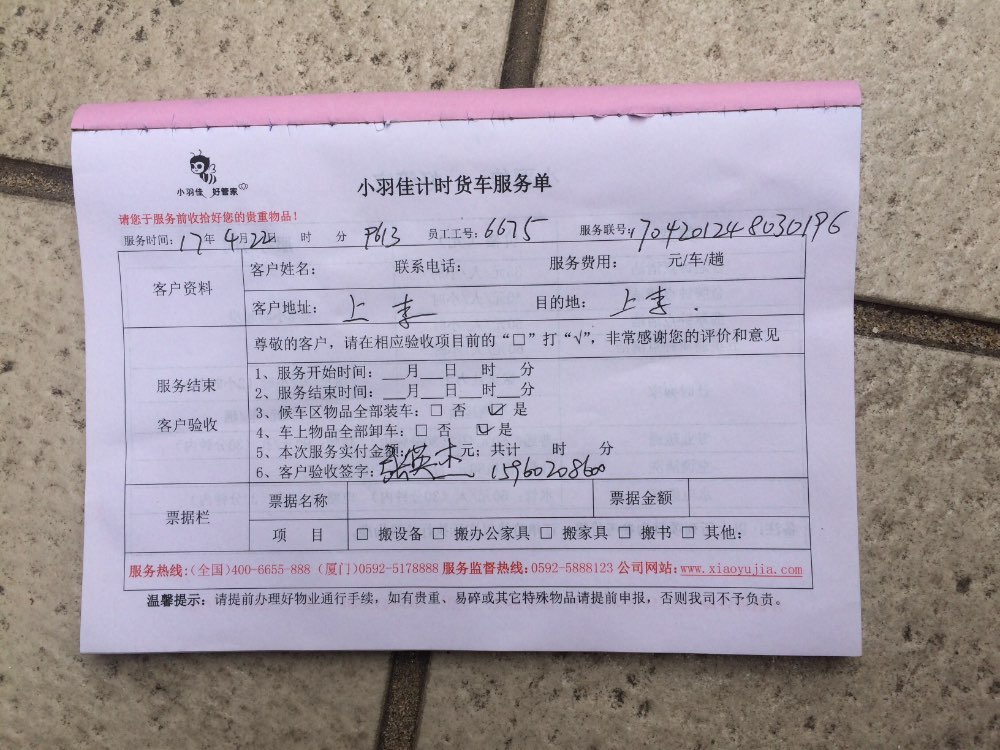 小羽佳 好管家
小羽佳计时货车服务单
请您于服务前收拾好您的贵重物品！
服务时间：17年4月22日 时 分 P613 员工工号：6675 服务联号：704201248030196
客户资料
客户姓名： 联系电话： 服务费用： 元/车/趟
客户地址：上李 目的地：上李.
服务结束
客户验收
尊敬的客户，请在相应验收项目前的“□”打“√”，非常感谢您的评价和意见
1、服务开始时间：___月___日___时___分
2、服务结束时间：___月___日___时___分
3、候车区物品全部装车：□ 否 ☑ 是
4、车上物品全部卸车：□ 否 ☑ 是
5、本次服务实付金额： 元；共计 时 分
6、客户验收签字：张英杰 15960208600
票据栏
票据名称 票据金额
项 目 □ 搬设备 □ 搬办公家具 □ 搬家具 □ 搬书 □ 其他：
服务热线:(全国)400-6655-888 (厦门)0592-5178888 服务监督热线:0592-5888123 公司网站:www.xiaoyujia.com
温馨提示：请提前办理好物业通行手续，如有贵重、易碎或其它特殊物品请提前申报，否则我司不予负责。